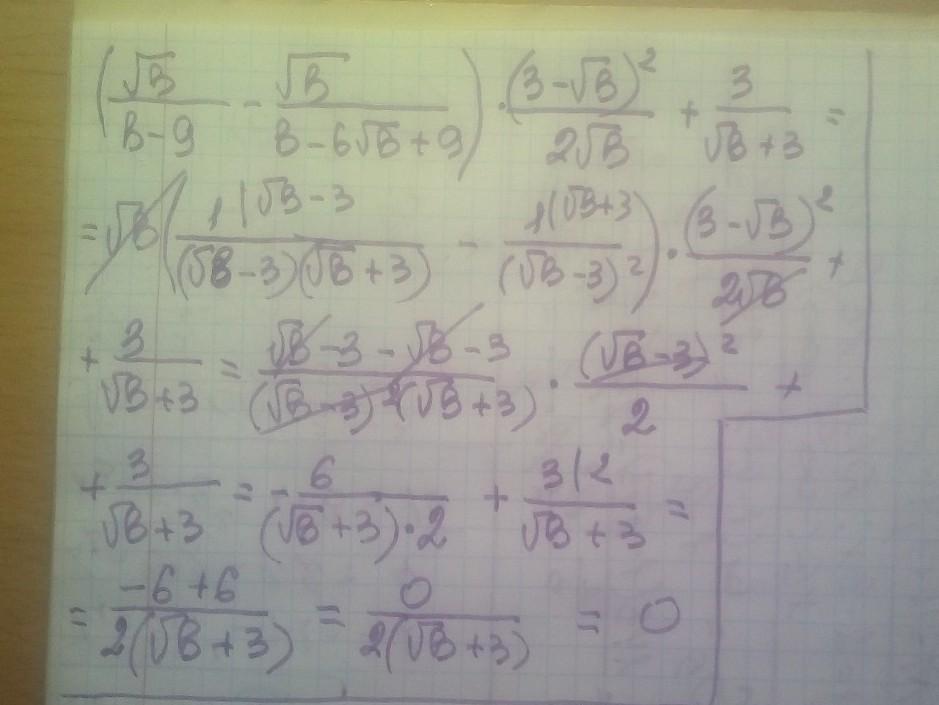 (√B/(B-9) - √B/(B-6√B+9)) · (3-√B)²/(2√B) + 3/(√B+3) =
= √B (1(√B-3/((√B-3)(√B+3)) - 1(√B+3)/(√B-3)²) · (3-√B)²/(2√B) +
+ 3/(√B+3) = (√B-3-√B-3)/((√B-3)²(√B+3)) · (√B-3)²/2 +
+ 3/(√B+3) = - 6/((√B+3)·2) + 3(2/(√B+3) =
= (-6+6)/(2(√B+3)) = 0/(2(√B+3)) = 0